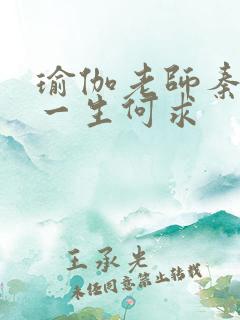 瑜伽老师秦
一生何求
王承先
未经同意禁止转载